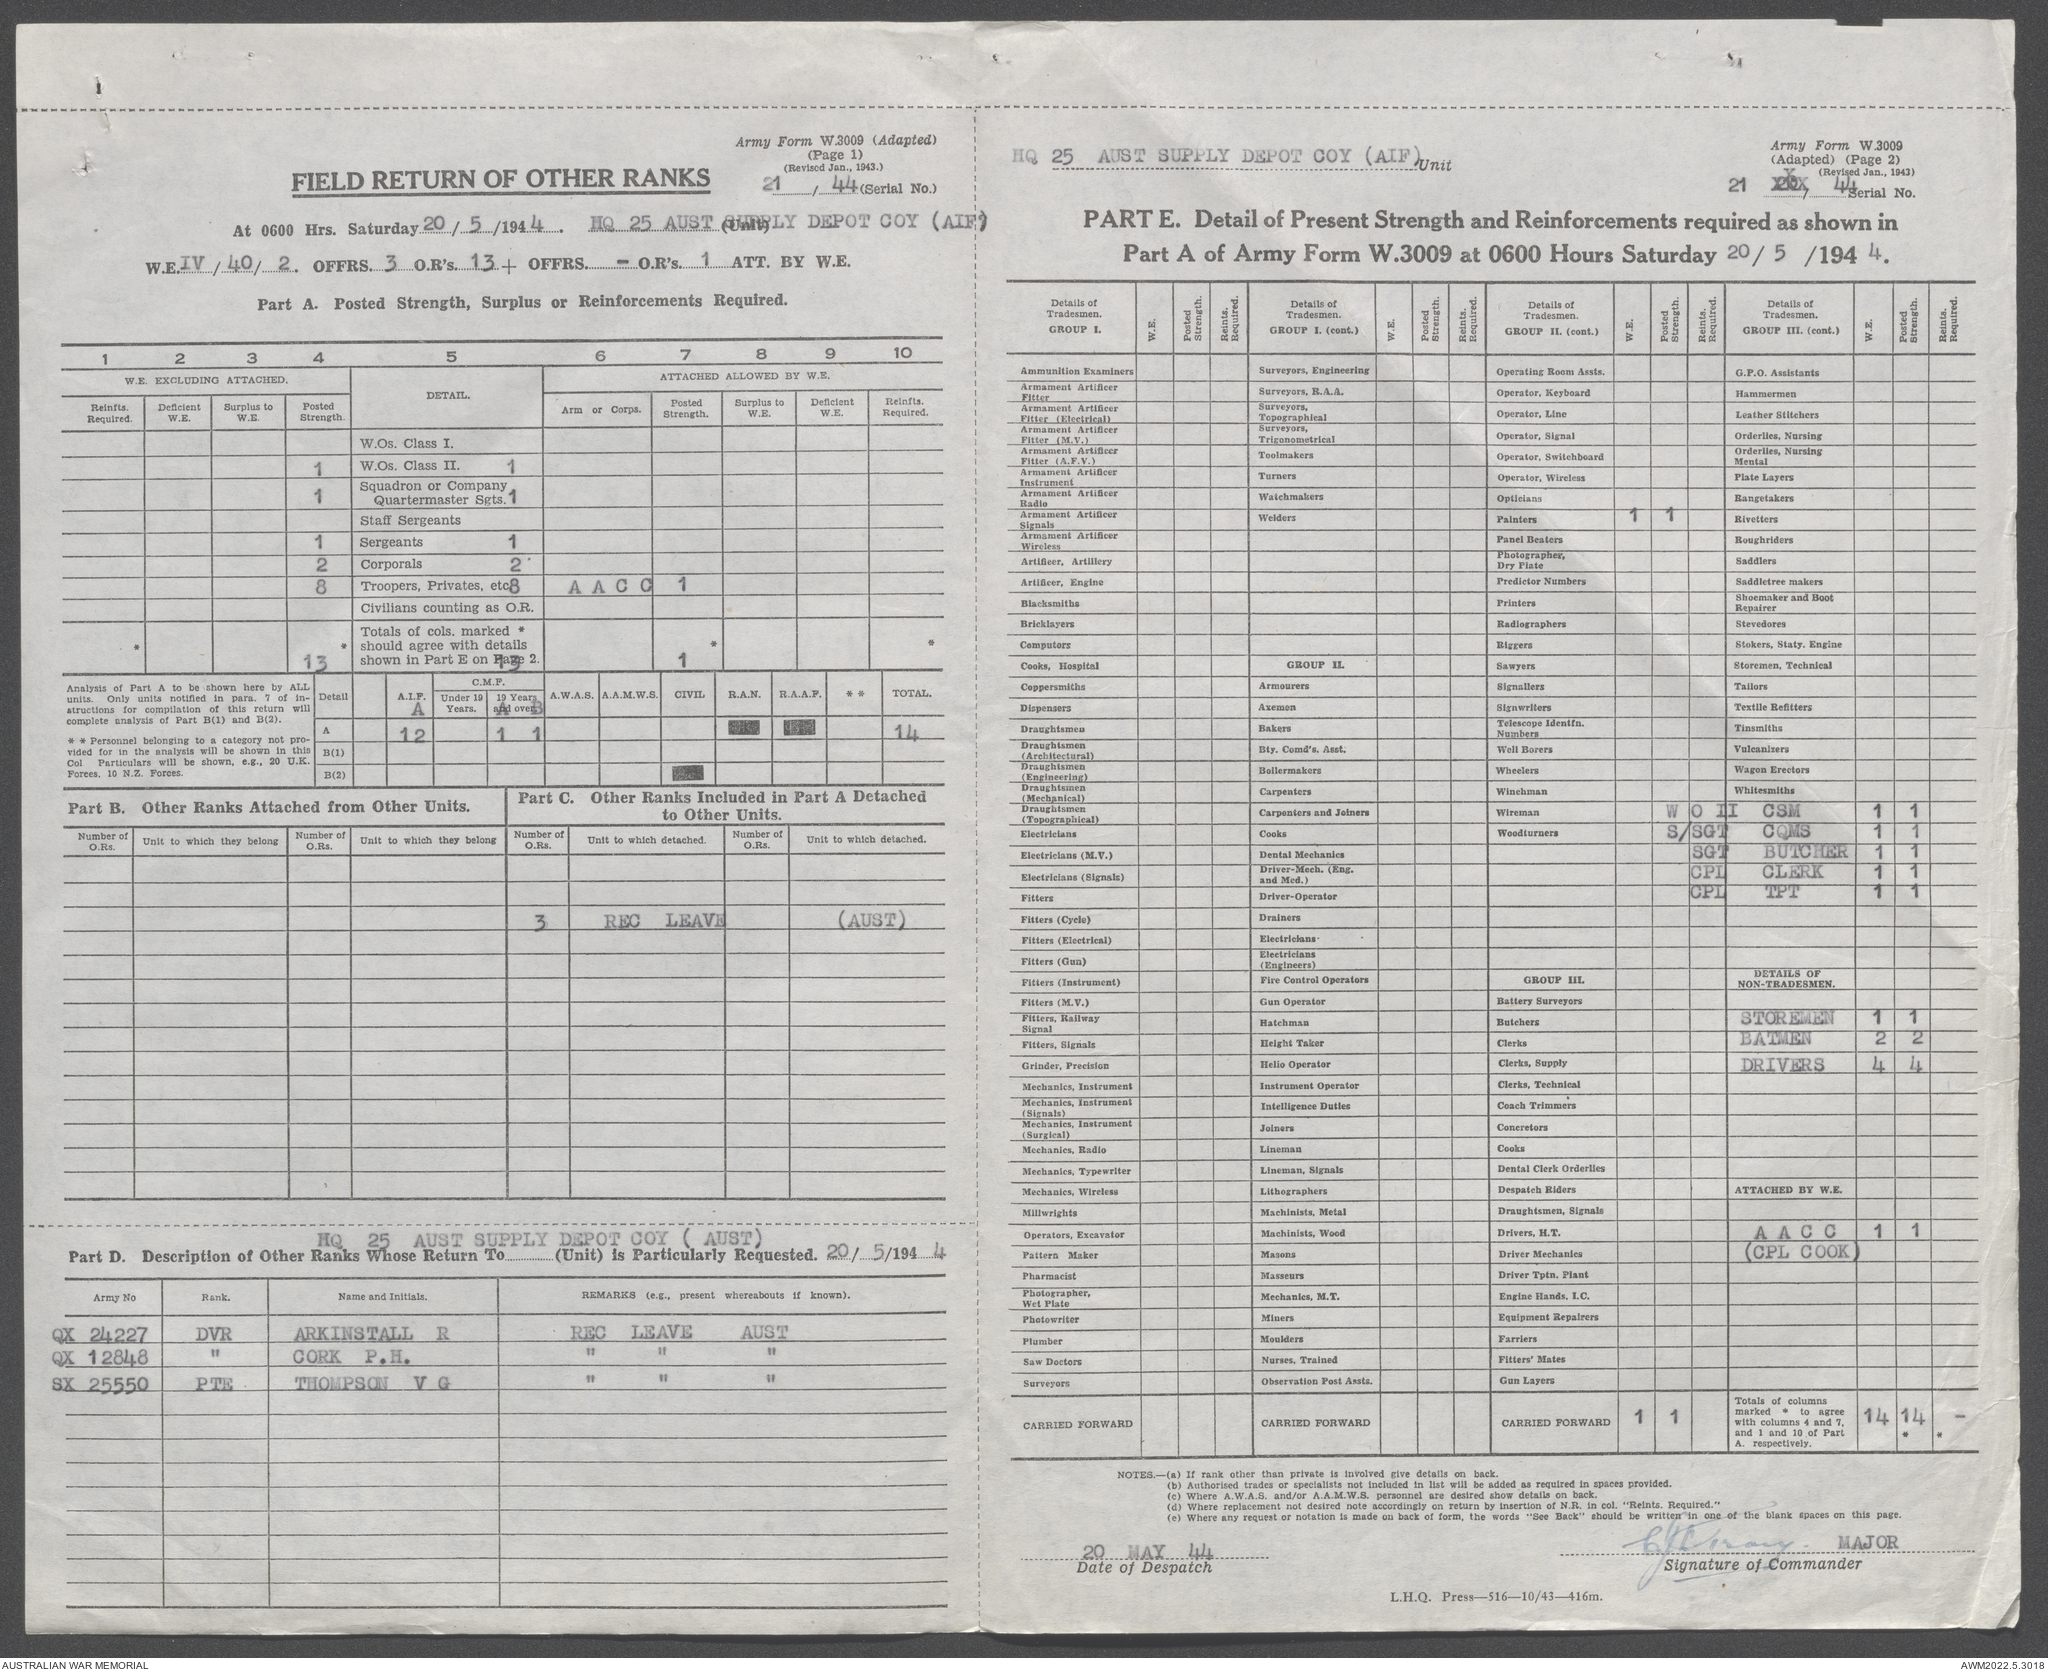 Army Form W.3009 (Adapted)
(Page 1)
(Revised Jan., 1943.)
21 / 44 (Serial No.)
FIELD RETURN OF OTHER RANKS
At 0600 Hrs. Saturday 20 / 5 /194 4 . HQ 25 AUST SUPPLY DEPOT COY (AIF) (Unit)
W.E. IV / 40 / 2. OFFRS. 3 O.R's. 13 + OFFRS. - O.R's. 1 ATT. BY W.E.
Part A. Posted Strength, Surplus or Reinforcements Required.
1 2 3 4 5 6 7 8 9 10
W.E. EXCLUDING ATTACHED. DETAIL. ATTACHED ALLOWED BY W.E.
Reinfts. Required. Deficient W.E. Surplus to W.E. Posted Strength. Arm or Corps. Posted Strength. Surplus to W.E. Deficient W.E. Reinfts. Required.
W.Os. Class I.
1 W.Os. Class II. 1
1 Squadron or Company Quartermaster Sgts. 1
Staff Sergeants
1 Sergeants 1
2 Corporals 2
8 Troopers, Privates, etc. 8 A A C C 1
Civilians counting as O.R.
* 13 * Totals of cols. marked * should agree with details shown in Part E on Page 2. 13 1 * *
Analysis of Part A to be shown here by ALL units. Only units notified in para. 7 of instructions for compilation of this return will complete analysis of Part B(1) and B(2).
* * Personnel belonging to a category not provided for in the analysis will be shown in this Col Particulars will be shown, e.g., 20 U.K. Forces, 10 N.Z. Forces.
Detail A.I.F. A C.M.F. Under 19 Years. 19 Years and over. A B A.W.A.S. A.A.M.W.S. CIVIL R.A.N. R.A.A.F. * * TOTAL.
A 12 1 1 14
B(1)
B(2)
Part B. Other Ranks Attached from Other Units.
Number of O.Rs. Unit to which they belong Number of O.Rs. Unit to which they belong
Part C. Other Ranks Included in Part A Detached to Other Units.
Number of O.Rs. Unit to which detached. Number of O.Rs. Unit to which detached.
3 REC LEAVE (AUST)
HQ 25 AUST SUPPLY DEPOT COY ( AUST)
Part D. Description of Other Ranks Whose Return To (Unit) is Particularly Requested. 20/ 5/194 4
Army No Rank. Name and Initials. REMARKS (e.g., present whereabouts if known).
QX 24227 DVR ARKINSTALL R REC LEAVE AUST
QX 12848 " CORK P.H. " " "
SX 25550 PTE THOMPSON V G " " "
HQ 25 AUST SUPPLY DEPOT COY (AIF) Unit
Army Form W.3009
(Adapted) (Page 2)
(Revised Jan., 1943)
21 44 Serial No.
PART E. Detail of Present Strength and Reinforcements required as shown in
Part A of Army Form W.3009 at 0600 Hours Saturday 20/ 5 /194 4.
Details of Tradesmen. GROUP I. W.E. Posted Strength. Reints. Required.
Ammunition Examiners
Armament Artificer Fitter
Armament Artificer Fitter (Electrical)
Armament Artificer Fitter (M.V.)
Armament Artificer Fitter (A.F.V.)
Armament Artificer Instrument
Armament Artificer Radio
Armament Artificer Signals
Armament Artificer Wireless
Artificer, Artillery
Artificer, Engine
Blacksmiths
Bricklayers
Computors
Cooks, Hospital
Coppersmiths
Dispensers
Draughtsmen
Draughtsmen (Architectural)
Draughtsmen (Engineering)
Draughtsmen (Mechanical)
Draughtsmen (Topographical)
Electricians
Electricians (M.V.)
Electricians (Signals)
Fitters
Fitters (Cycle)
Fitters (Electrical)
Fitters (Gun)
Fitters (Instrument)
Fitters (M.V.)
Fitters, Railway Signal
Fitters, Signals
Grinder, Precision
Mechanics, Instrument
Mechanics, Instrument (Signals)
Mechanics, Instrument (Surgical)
Mechanics, Radio
Mechanics, Typewriter
Mechanics, Wireless
Millwrights
Operators, Excavator
Pattern Maker
Pharmacist
Photographer, Wet Plate
Photowriter
Plumber
Saw Doctors
Surveyors
CARRIED FORWARD
Details of Tradesmen. GROUP I. (cont.) W.E. Posted Strength. Reints. Required.
Surveyors, Engineering
Surveyors, R.A.A.
Surveyors, Topographical
Surveyors, Trigonometrical
Toolmakers
Turners
Watchmakers
Welders
GROUP II.
Armourers
Axemen
Bakers
Bty. Comd's. Asst.
Boilermakers
Carpenters
Carpenters and Joiners
Cooks
Dental Mechanics
Driver-Mech. (Eng. and Med.)
Driver-Operator
Drainers
Electricians
Electricians (Engineers)
Fire Control Operators
Gun Operator
Hatchman
Height Taker
Helio Operator
Instrument Operator
Intelligence Duties
Joiners
Lineman
Lineman, Signals
Lithographers
Machinists, Metal
Machinists, Wood
Masons
Masseurs
Mechanics, M.T.
Miners
Moulders
Nurses, Trained
Observation Post Assts.
CARRIED FORWARD
Details of Tradesmen. GROUP II. (cont.) W.E. Posted Strength. Reints. Required.
Operating Room Assts.
Operator, Keyboard
Operator, Line
Operator, Signal
Operator, Switchboard
Operator, Wireless
Opticians
Painters 1 1
Panel Beaters
Photographer, Dry Plate
Predictor Numbers
Printers
Radiographers
Riggers
Sawyers
Signallers
Signwriters
Telescope Identfn. Numbers
Well Borers
Wheelers
Winchman
Wireman
Woodturners
GROUP III.
Battery Surveyors
Butchers
Clerks
Clerks, Supply
Clerks, Technical
Coach Trimmers
Concretors
Cooks
Dental Clerk Orderlies
Despatch Riders
Draughtsmen, Signals
Drivers, H.T.
Driver Mechanics
Driver Tptn. Plant
Engine Hands, I.C.
Equipment Repairers
Farriers
Fitters' Mates
Gun Layers
CARRIED FORWARD 1 1
Details of Tradesmen. GROUP III. (cont.) W.E. Posted Strength. Reints. Required.
G.P.O. Assistants
Hammermen
Leather Stitchers
Orderlies, Nursing
Orderlies, Nursing Mental
Plate Layers
Rangetakers
Rivetters
Roughriders
Saddlers
Saddletree makers
Shoemaker and Boot Repairer
Stevedores
Stokers, Staty. Engine
Storemen, Technical
Tailors
Textile Refitters
Tinsmiths
Vulcanizers
Wagon Erectors
Whitesmiths
W O II CSM 1 1
S/SGT CQMS 1 1
SGT BUTCHER 1 1
CPL CLERK 1 1
CPL TPT 1 1
DETAILS OF NON-TRADESMEN.
STOREMEN 1 1
BATMEN 2 2
DRIVERS 4 4
ATTACHED BY W.E.
A A C C 1 1
(CPL COOK)
Totals of columns marked * to agree with columns 4 and 7, and 1 and 10 of Part A. respectively. 14 14 * - *
NOTES.—(a) If rank other than private is involved give details on back.
(b) Authorised trades or specialists not included in list will be added as required in spaces provided.
(c) Where A.W.A.S. and/or A.A.M.W.S. personnel are desired show details on back.
(d) Where replacement not desired note accordingly on return by insertion of N.R. in col. "Reints. Required."
(e) Where any request or notation is made on back of form, the words "See Back" should be written in one of the blank spaces on this page.
20 MAY 44
Date of Despatch
MAJOR
Signature of Commander
L.H.Q. Press—516—10/43—416m.
AUSTRALIAN WAR MEMORIAL
AWM2022.5.3018